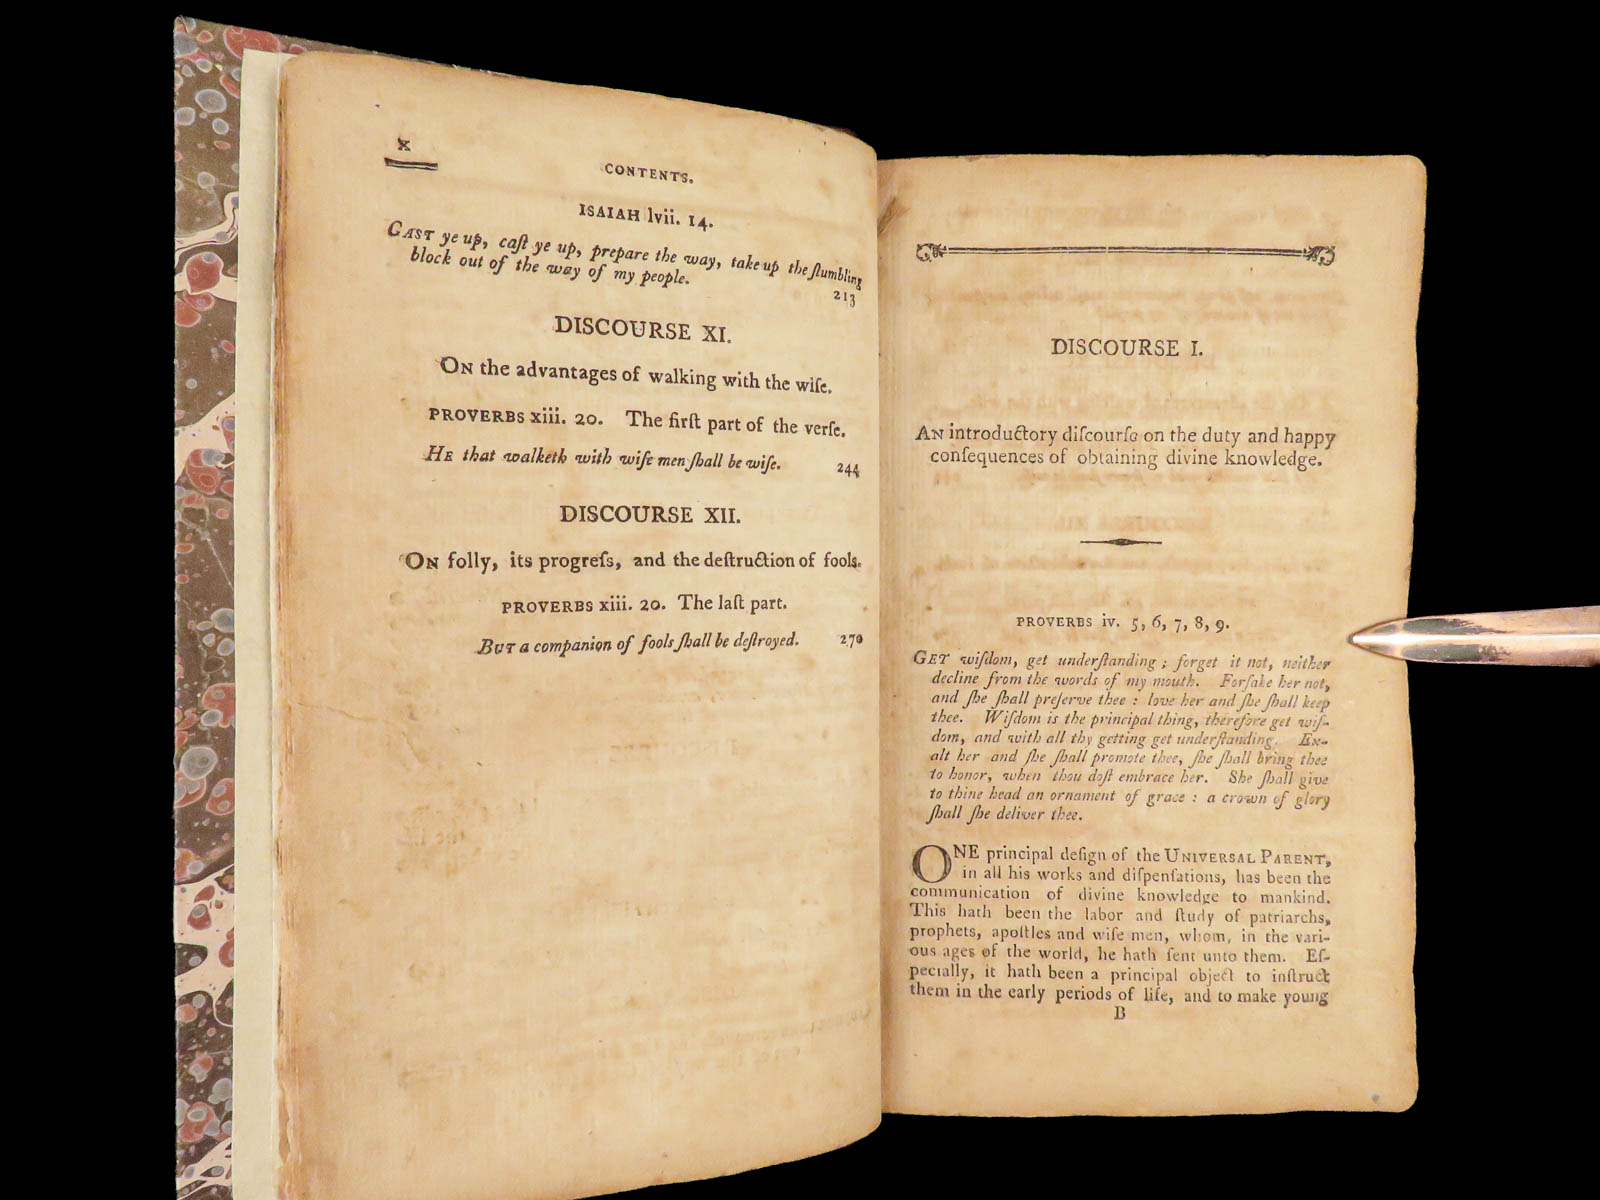 x
CONTENTS.
ISAIAH lvii. 14.
CAST ye up, caſt ye up, prepare the way, take up the ſtumbling
block out of the way of my people.
213
DISCOURSE XI.
ON the advantages of walking with the wiſe.
PROVERBS xiii. 20. The firſt part of the verſe.
HE that walketh with wiſe men ſhall be wiſe. 244
DISCOURSE XII.
ON folly, its progreſs, and the deſtruction of fools.
PROVERBS xiii. 20. The laſt part.
BUT a companion of fools ſhall be deſtroyed. 270
DISCOURSE I.
AN introductory diſcourſe on the duty and happy
conſequences of obtaining divine knowledge.
PROVERBS iv. 5, 6, 7, 8, 9.
GET wiſdom, get underſtanding; forget it not, neither
decline from the words of my mouth. Forſake her not,
and ſhe ſhall preſerve thee: love her and ſhe ſhall keep
thee. Wiſdom is the principal thing, therefore get wiſ-
dom, and with all thy getting get underſtanding. Ex-
alt her and ſhe ſhall promote thee, ſhe ſhall bring thee
to honor, when thou doſt embrace her. She ſhall give
to thine head an ornament of grace: a crown of glory
ſhall ſhe deliver thee.
ONE principal deſign of the UNIVERSAL PARENT,
in all his works and diſpenſations, has been the
communication of divine knowledge to mankind.
This hath been the labor and ſtudy of patriarchs,
prophets, apoſtles and wiſe men, whom, in the vari-
ous ages of the world, he hath ſent unto them. Eſ-
pecially, it hath been a principal object to inſtruct
them in the early periods of life, and to make young
B